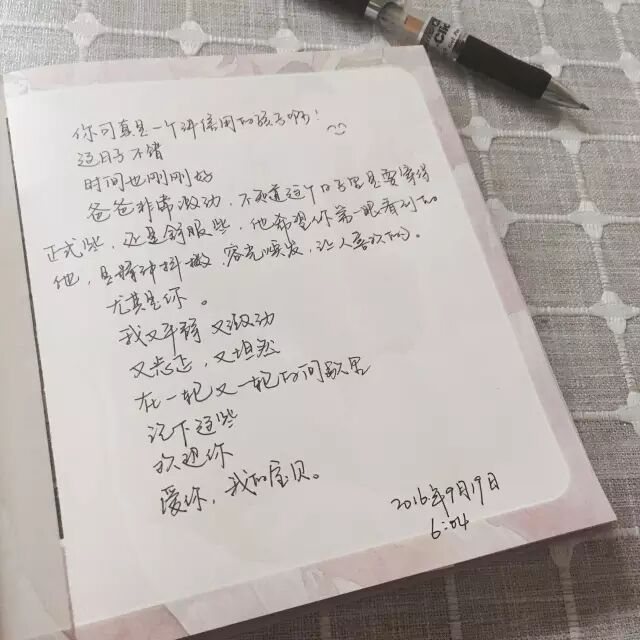 你可真是一个讲信用的孩子啊!
这日子不错
时间也刚刚好
爸爸非常激动,不知道这个日子里是要穿得
正式些,还是舒服些,他希望你第一眼看到的
他,是精神抖擞 容光焕发,让人喜欢的。
尤其是你。
我又平静 又激动
又忐忑,又坦然
在一轮又一轮的间歇里
记下这些
欢迎你
爱你,我的宝贝。
2016年9月19日
6:04